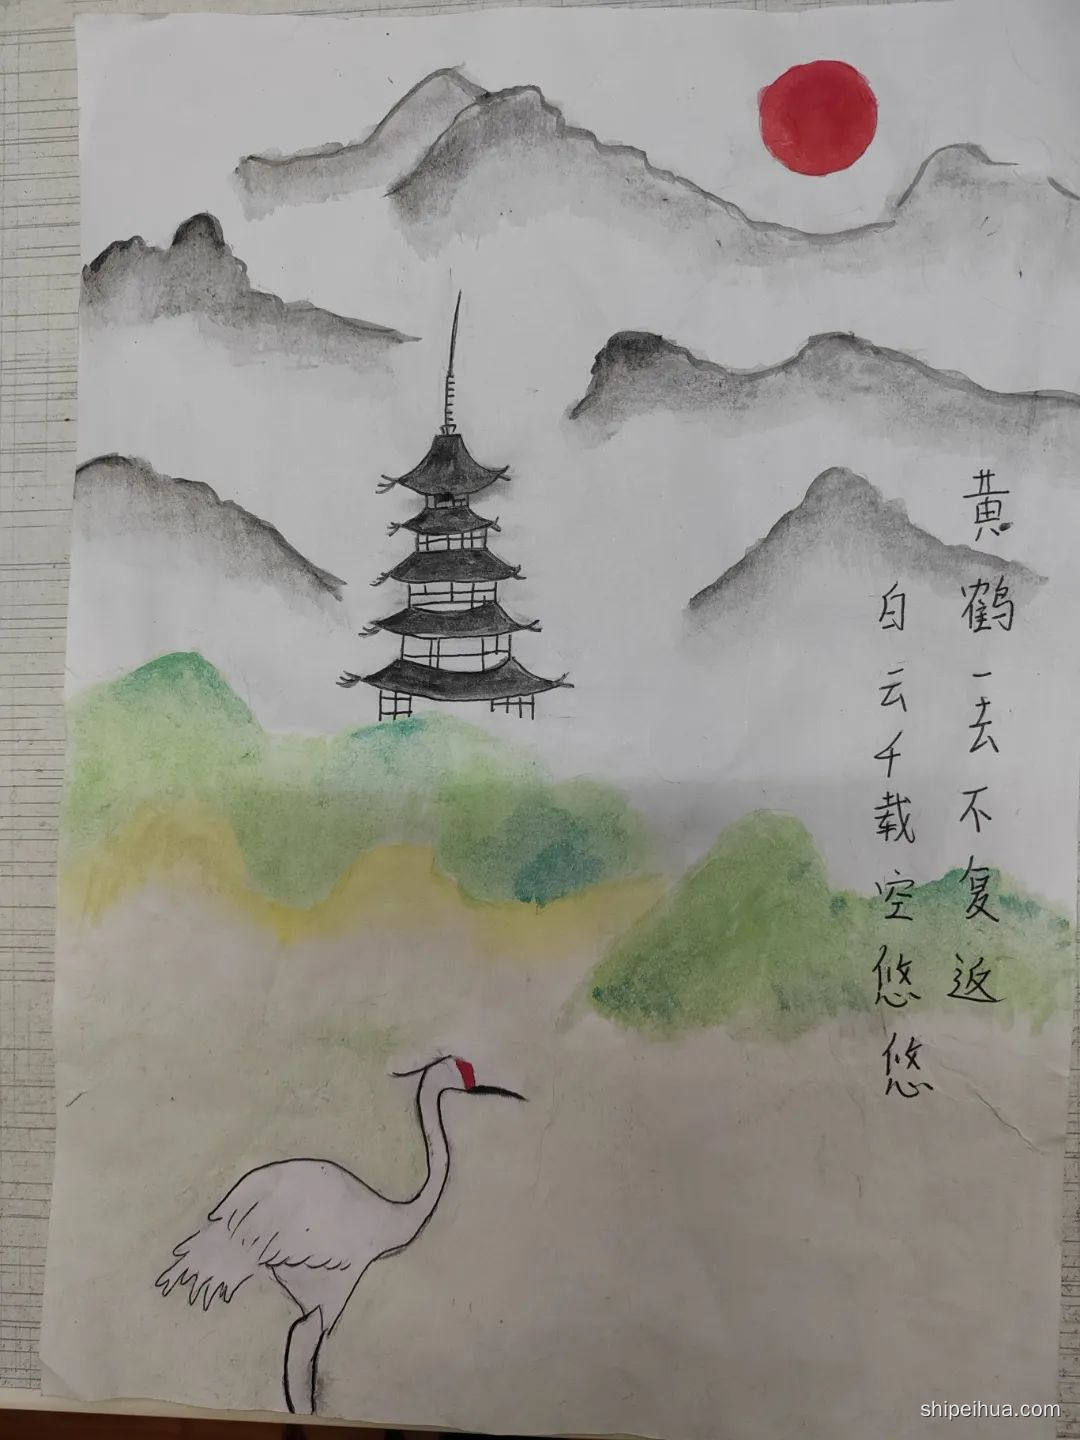 黄鹤一去不复返
白云千载空悠悠
shipeihua.com